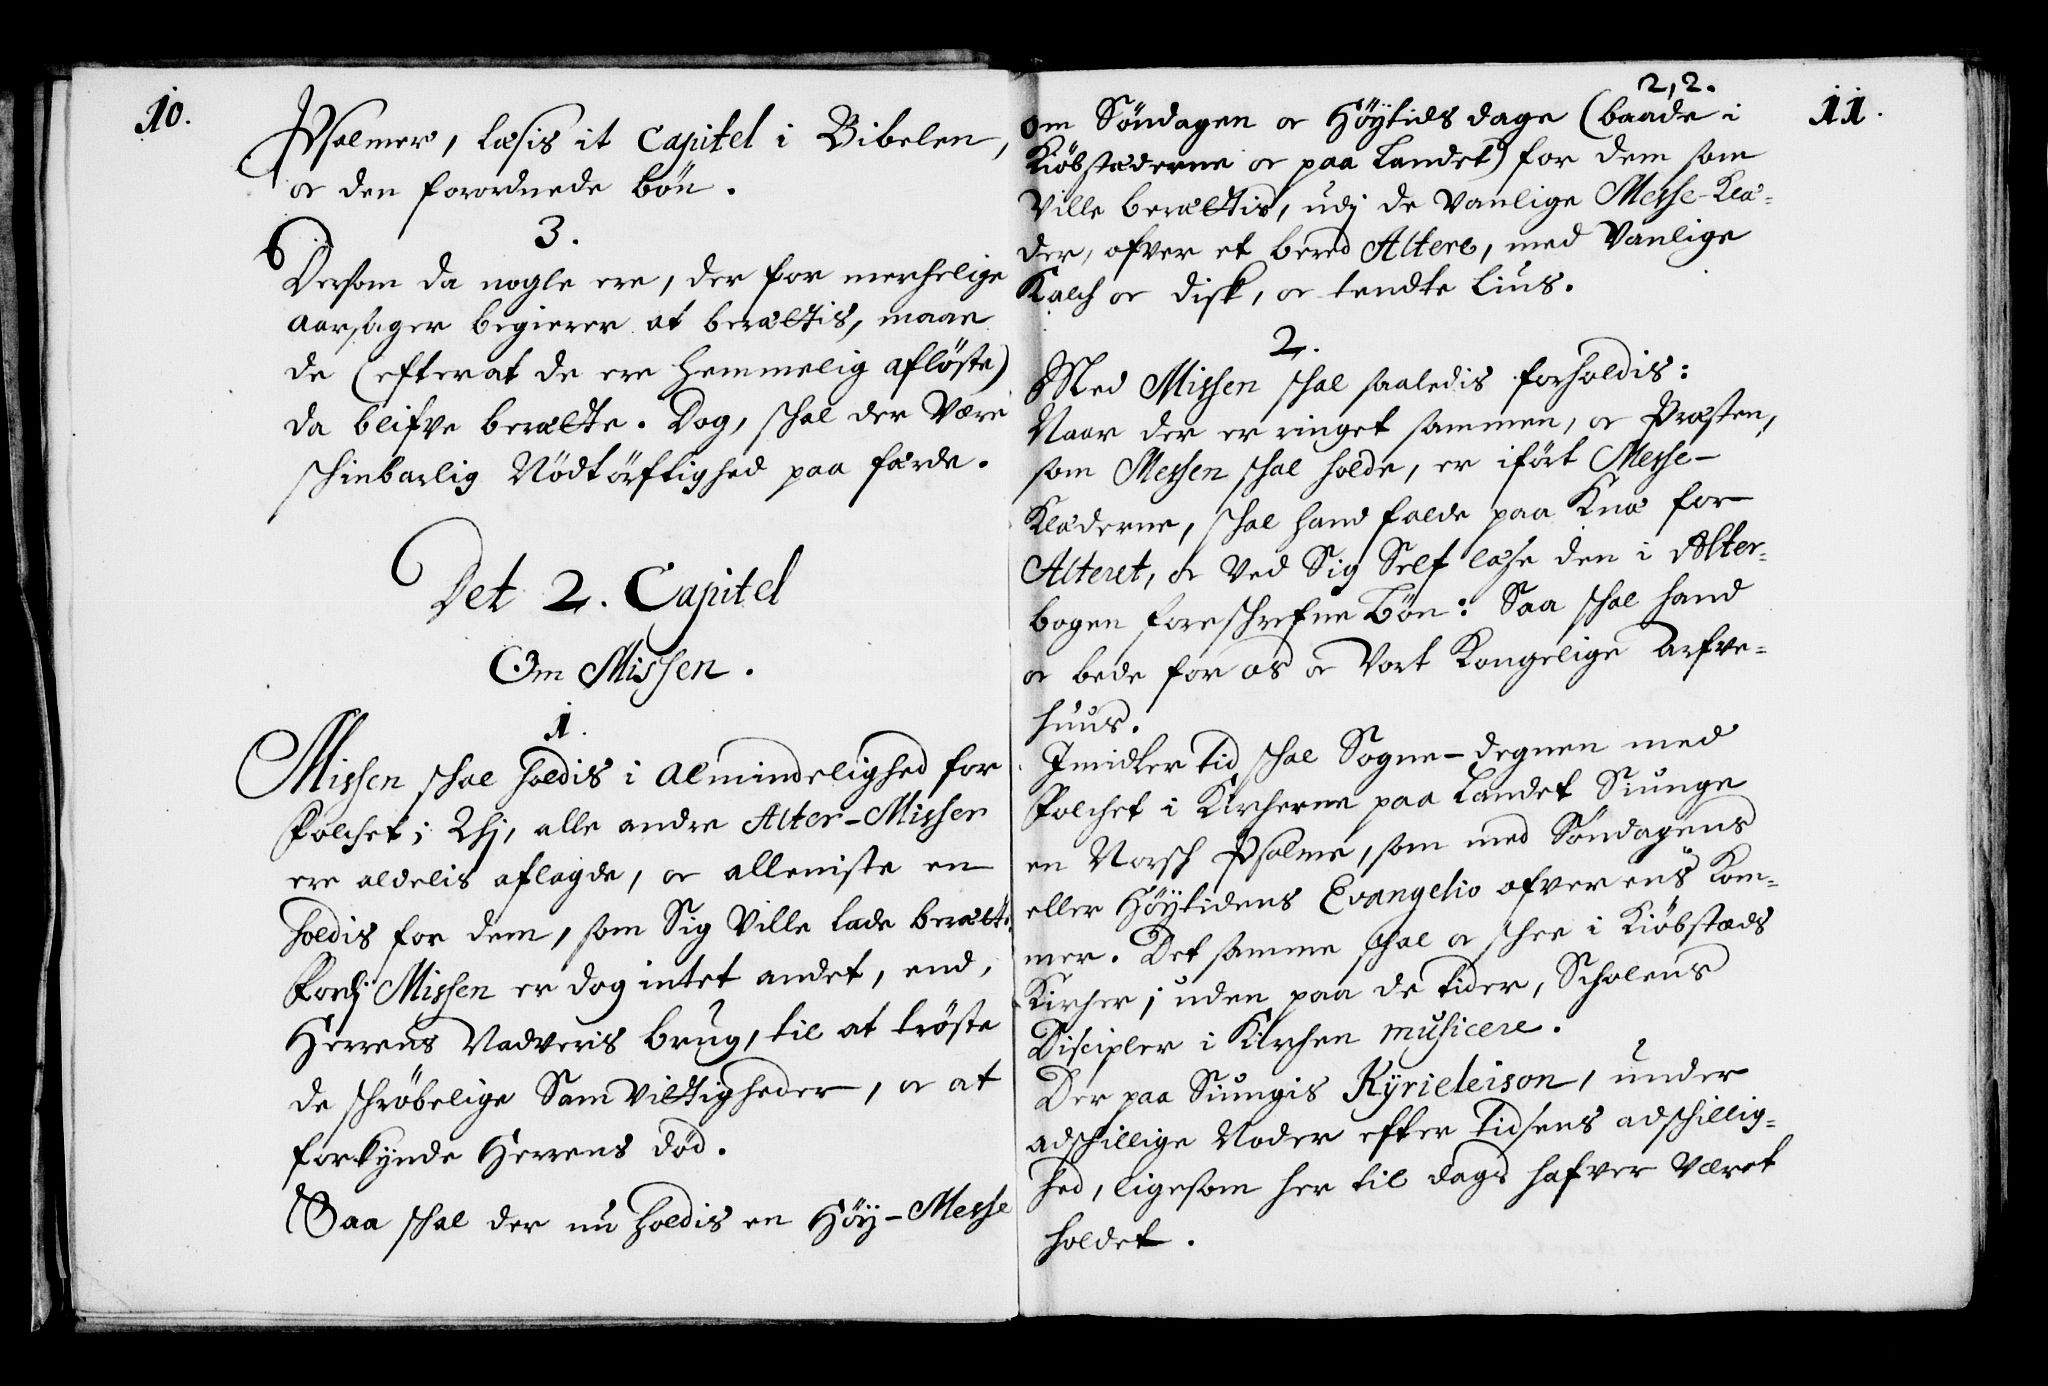 10.
Psalmer, læsis it Capitel i Bibelen,
oc den forordnede bøn.
3.
Dersom da nogle ere, der for merchelige
aarsager begierer at berættis, maae
de (efter at de ere hemmelig afløste)
da blifve berætte. Dog, schal der være
schinbarlig Nødtørftighed paa færde.
Det 2. Capitel
Om Missen.
1.
Missen schal holdis i almindelighed for
folchet; Thj, alle andre Alter-Misser
ere aldelis aflagde, oc alleniste en
holdis for dem, som Sig ville lade berætte.
Fordj Missen er dog intet andet, end,
Herrens Nadveris brug, til at trøste
de schrøbelige Samvittigheder, oc at
forkynde Herrens død.
Saa schal der nu holdis en Høy-Messe
2,2.
11.
om Søndagen oc Høytids dage (baade i
Kiøbstæderne oc paa Landet) for dem som
ville berættis, udj de vanlige Messe-Klæ=
der, ofver et bered Altere, med vanlige
Kalch oc disk, oc tendte Lius.
2.
Med Missen schal saaledis forholdis:
Naar der er ringet sammen, oc Præsten,
som Messen schal holde, er iført Messe-
Klæderne, schal hand falde paa Knæ for
Alteret, oc ved Sig Self læse den i Alter-
bogen foreschrefne Bøn: Saa schal hand
oc bede for os oc Vort Kongelige Arfve=
huus.
Imidler tid schal Sogne-degnen med
folchet i Kircherne paa Landet Siunge
en Norsch Psalme, som med Søndagens
eller Høytidens Evangelio ofver ens Kom=
mer. Det samme schal oc schee i Kiøbstæds
Kircher; uden paa de tider, Scholens
Discipler i Kirchen musicere.
Der paa Siungis Kyrieleison, under
adschillige Noder efter tidsens adschillig=
hed, ligesom her til dags hafver været
holdet.